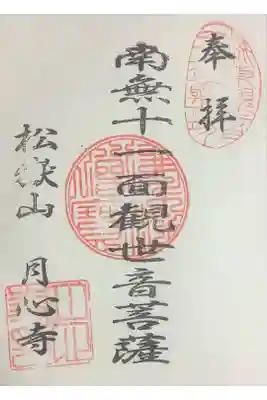 奉拝
南無十一面観世音菩薩
松嶽山
月心寺